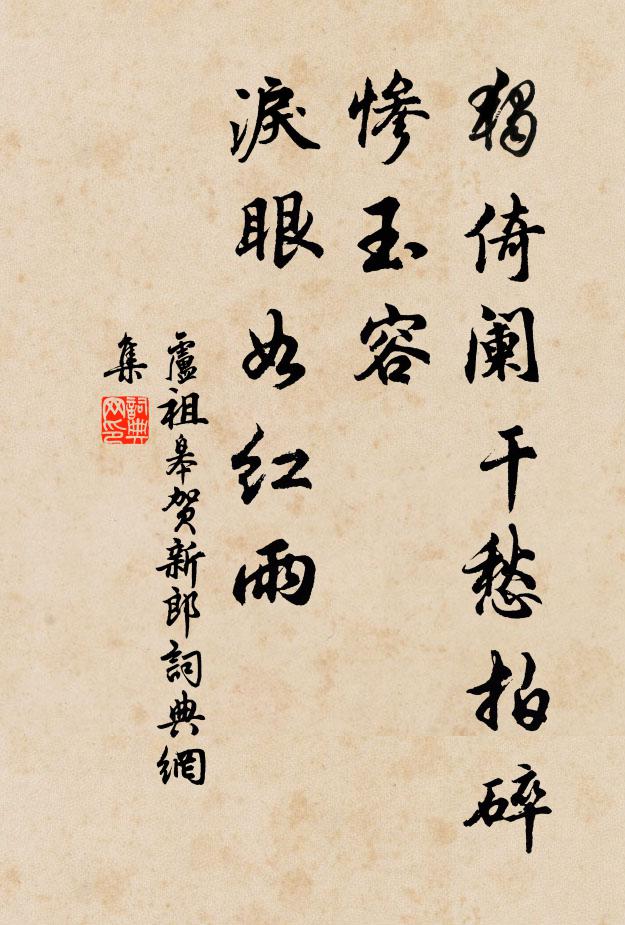 獨倚阑干愁拍碎
慘玉容
淚眼如紅雨
盧祖皋贺新郎詞典網
集
詞典
网印